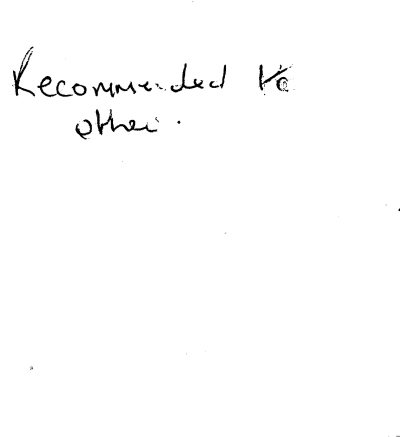 Recommended to
other.